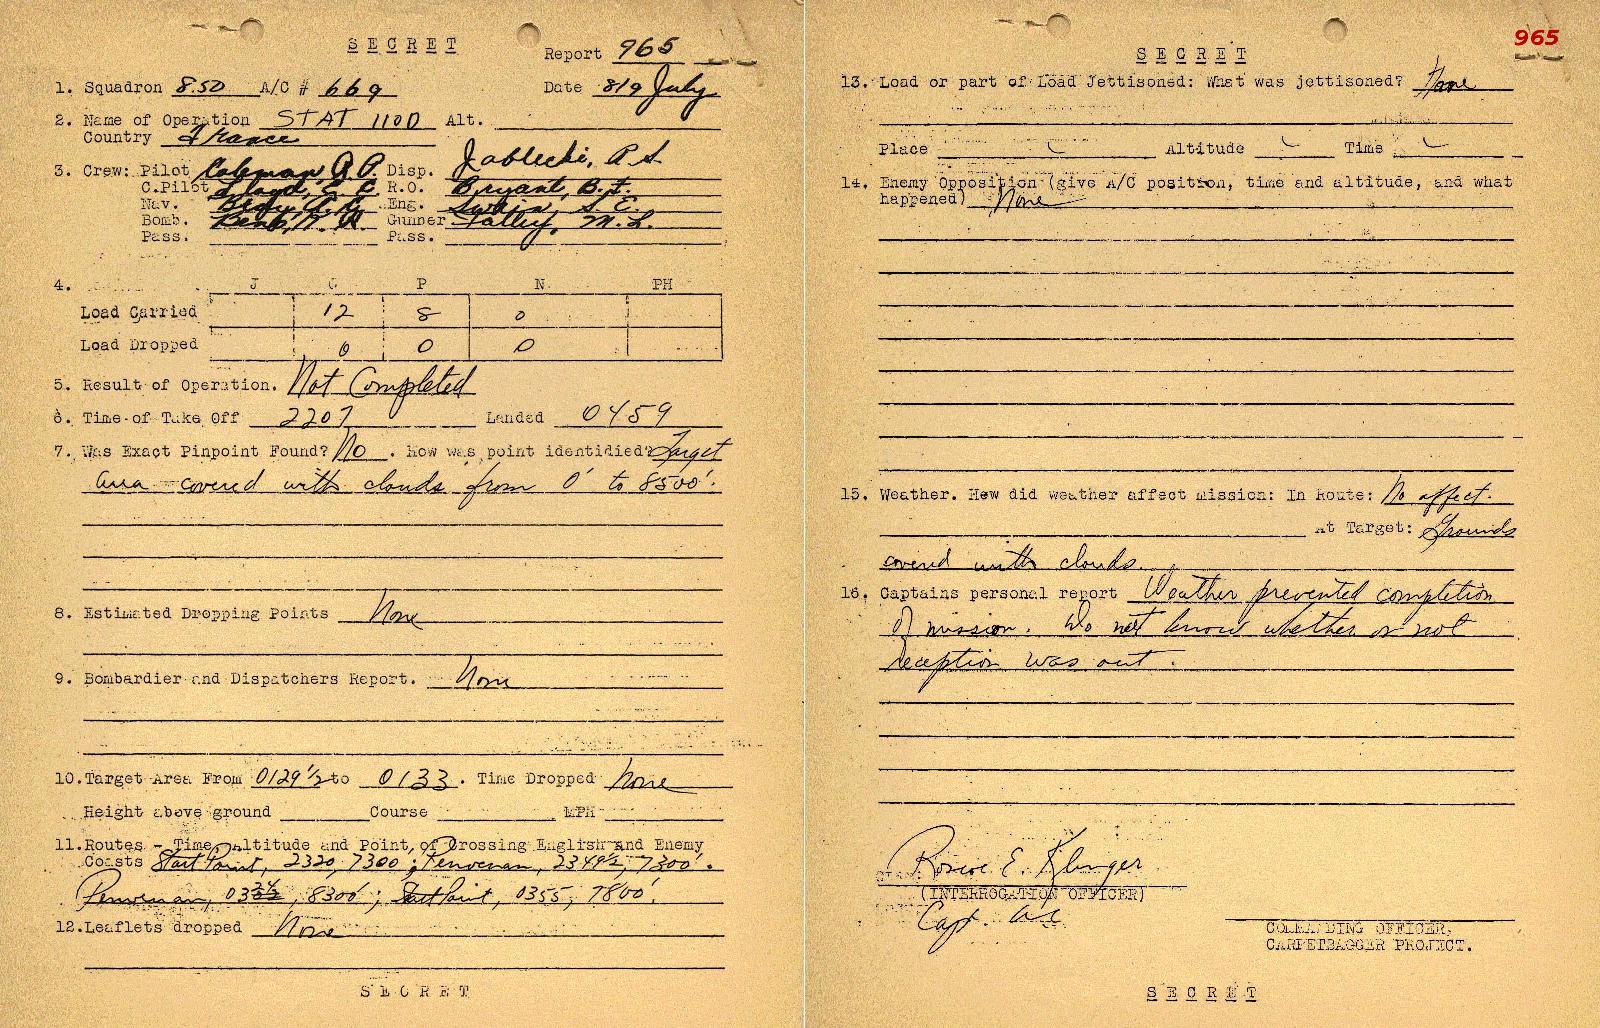 SECRET
Report 965
1. Squadron 850 A/C # 669 Date 8/9 July
2. Name of Operation STAT 110D Alt.
Country France
3. Crew: Pilot Coleman, Disp. Jablecki, A S
C.Pilot Lloyd, E E. R.O. Bryant, B. J.
Nav. Eng. Swain, S. E.
Bomb. Gunner Talley, M. L.
Pass. Pass.
4. J C P N PH
Load Carried 12 8 0
Load Dropped 0 0 0
5. Result of Operation. Not Completed
6. Time of Take Off 2207 Landed 0459
7. Was Exact Pinpoint Found? No. How was point identidied? Target
area covered with clouds from 0' to 8500'.
8. Estimated Dropping Points None
9. Bombardier and Dispatchers Report. None
10. Target Area From 0129½ to 0133. Time Dropped None
Height above ground Course MPH
11. Routes - Time, Altitude and Point, of Crossing English and Enemy
Coasts Start Point, 2320, 7300; Penvenan, 2349½, 7300'.
Penvenan, 8300'; Start Point, 0355, 7800'.
12. Leaflets dropped None
SECRET
965
SECRET
13. Load or part of Load Jettisoned: What was jettisoned? None
Place Altitude Time
14. Enemy Opposition (give A/C position, time and altitude, and what
happened) None
15. Weather. How did weather affect mission: In Route: No affect.
At Target: Grounds
covered with clouds.
16. Captains personal report Weather prevented completion
of mission. Do not know whether or not
reception was out.
Roscoe E. Klinger
(INTERROGATION OFFICER)
Capt. AC
COMMANDING OFFICER,
CARPETBAGGER PROJECT.
SECRET